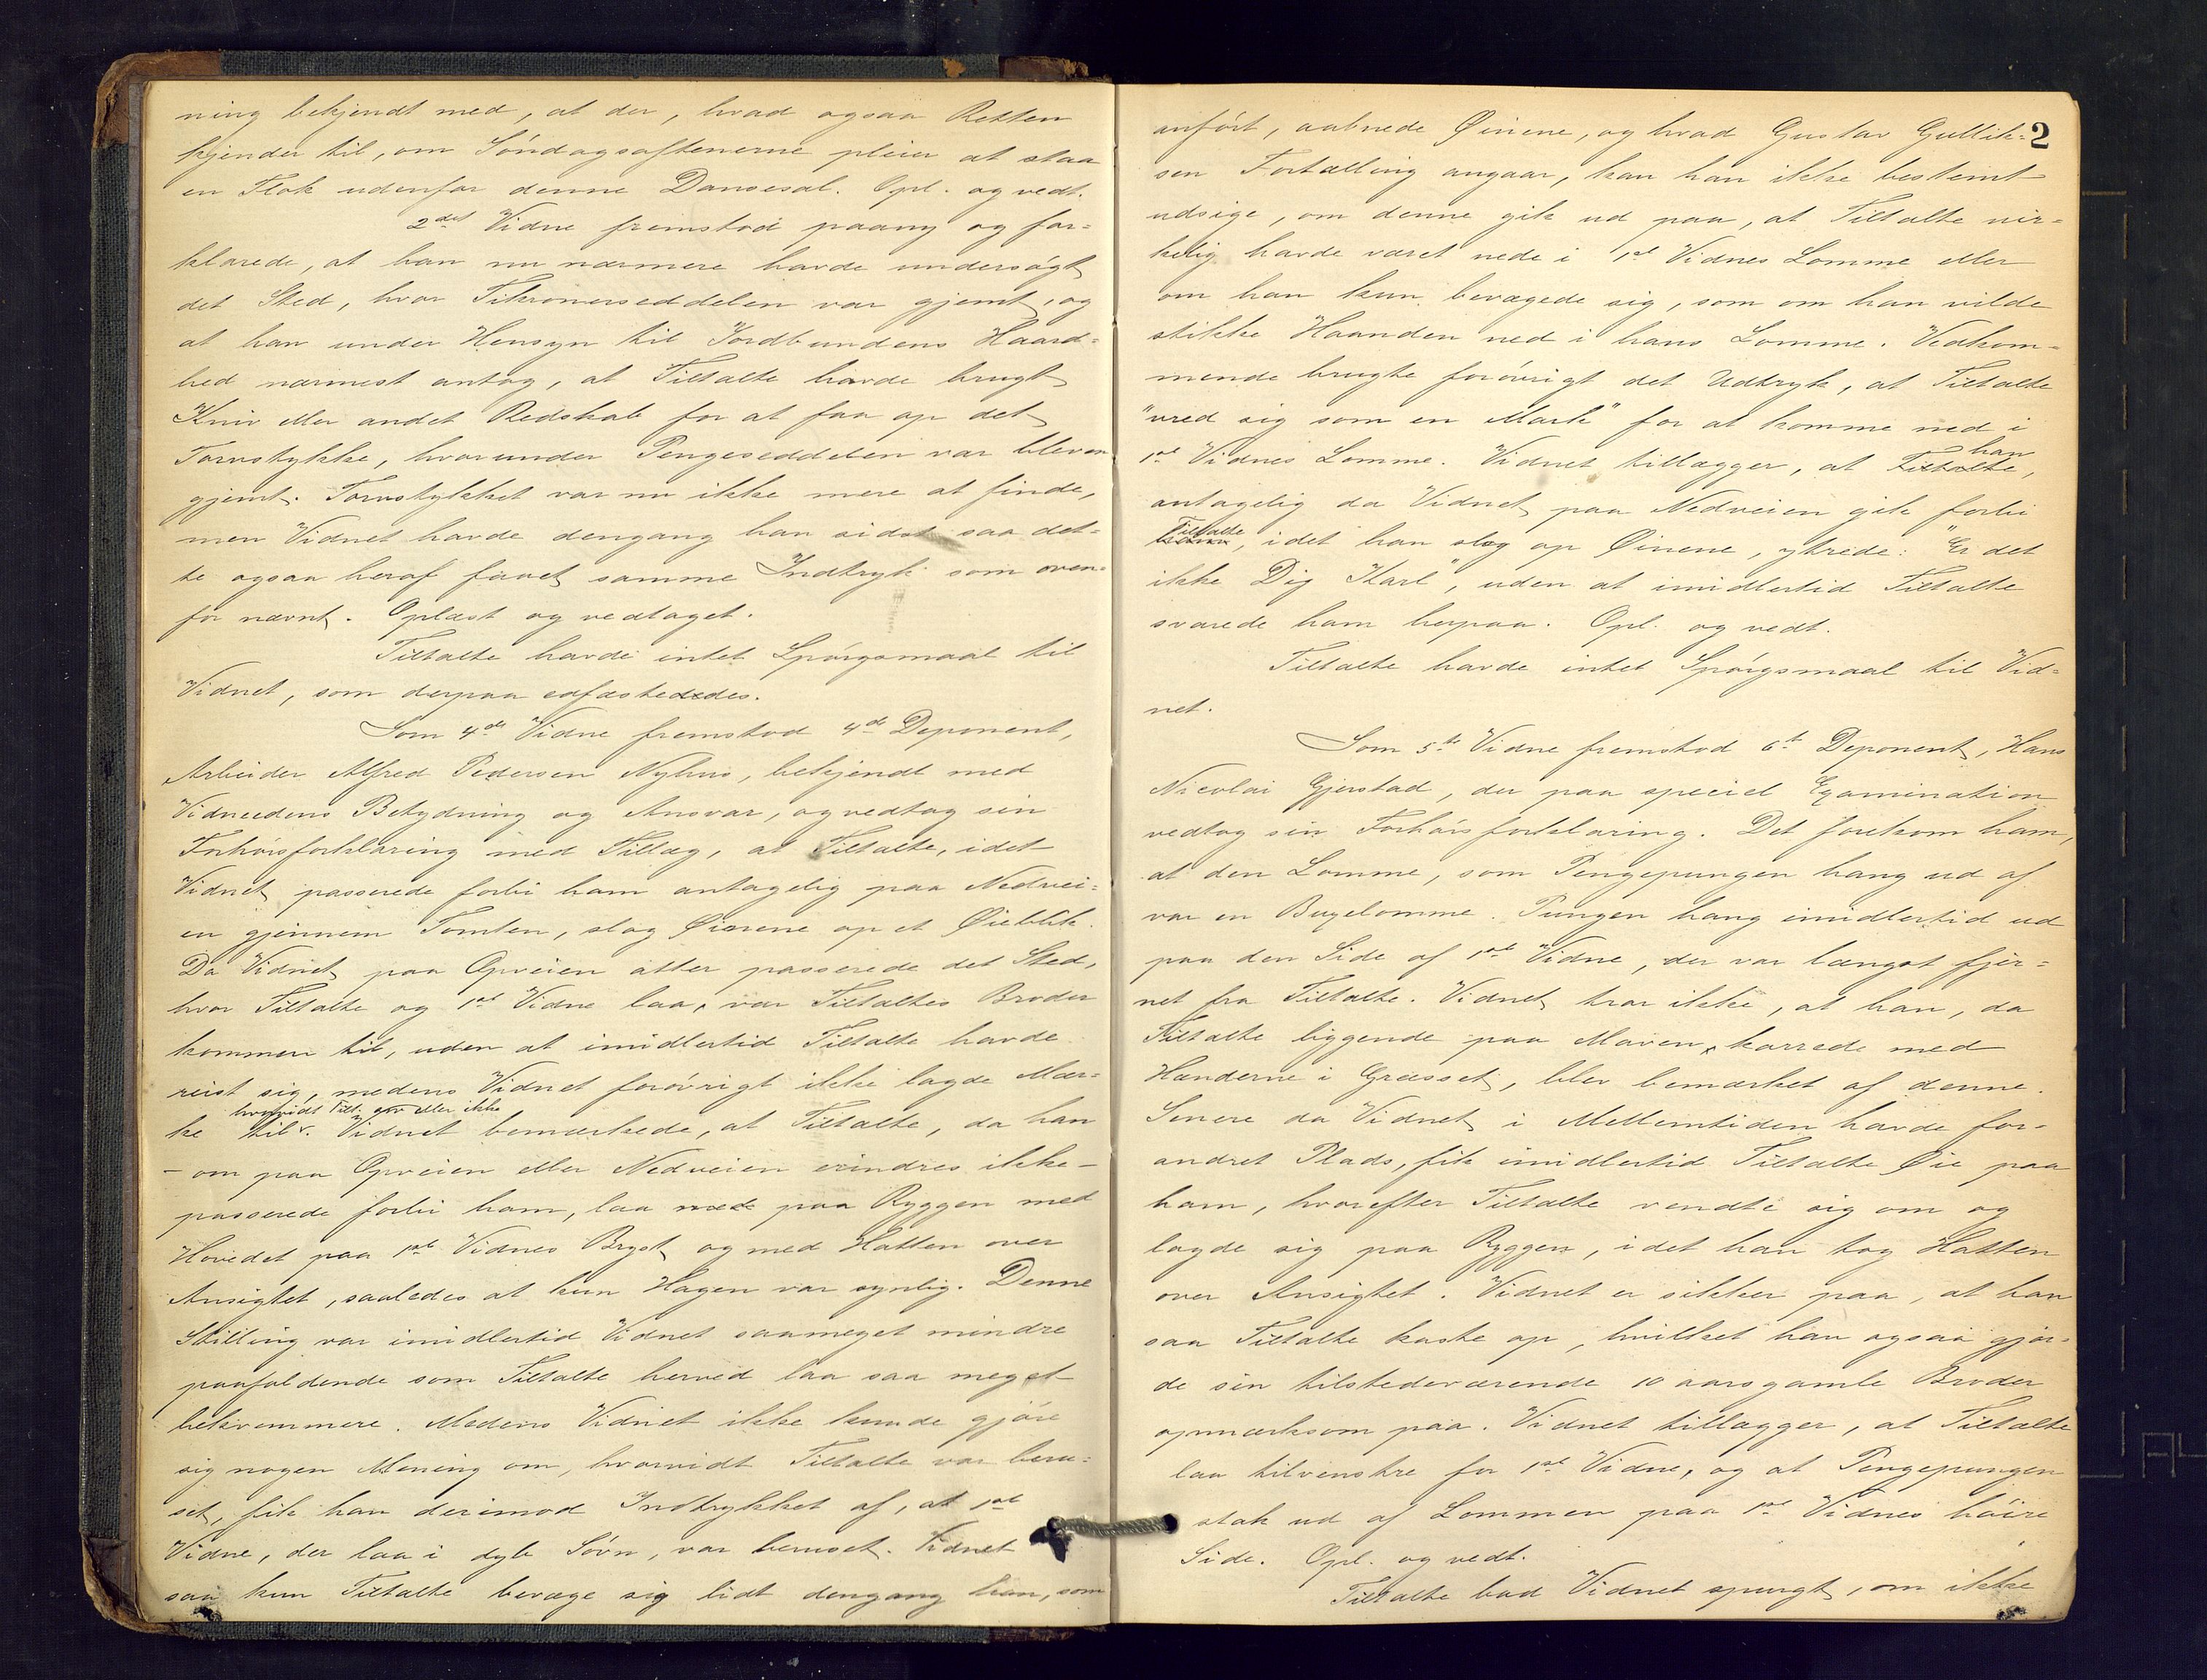 ning bekjendt med, at der, hvad ogsaa Retten
kjender til, om Söndagsaftenerne pleier at staa
en Flok udenfor denne Dansesal. Opl. og vedt.
2det Vidne fremstod paany og for-
klarede, at han nu nærmere havde undersögt
det Sted, hvor Tikroneseddelen var gjemt, og
at han under Hensyn til Jordbundens Haard-
hed nærmest antog, at Tiltalte havde brugt
Kniv eller andet Redskab for at faa op det
Torvstykke, hvorunder Pengeseddelen var bleven
gjemt. Torvstykket var nu ikke mere at finde,
men Vidnet havde dengang han sidst saa det-
te ogsaa heraf faaet samme Indtryk som oven-
for nævnt. Oplæst og vedtaget.
Tiltalte havde intet Spörgsmaal til
Vidnet, som derpaa edfæstededes.
Som 4de Vidne fremstod 4de Deponent,
Arbeider Alfred Pedersen Nyhus, bekjendt med
Vidneedens Betydning og Ansvar, og vedtog sin
Forhörsforklaring med Tillæg, at Tiltalte, idet
Vidnet passerede forbi ham antagelig paa Nedvei-
en gjennem Tomten, slog Öinene op et Öieblik.
Da Vidnet paa Opveien atter passerede det Sted,
hvor Tiltalte og 1ste Vidne laa, var Tiltaltes Broder
kommen til, uden at imidlertid Tiltalte havde
reist sig, medens Vidnet forövrigt ikke lagde Mær-
hvorvidt Tilt. gav eller ikke
ke til. Vidnet bemærkede, at Tiltalte, da han
- om paa Opveien eller Nedveien erindres ikke -
passerede forbi ham, laa paa Ryggen med
Hovedet paa 1ste Vidnes Bryst og med Hatten over
Ansigtet, saaledes at kun Hagen var synlig. Denne
Stilling var imidlertid Vidnet saameget mindre
paafaldende som Tiltalte herved laa saa meget
bekvemmere. Medens Vidnet ikke kunde gjöre
sig nogen Mening om, hvorvidt Tiltalte var beru-
set, fik han derimod Indtrykket af, at 1ste
Vidne, der laa i dyb Sövn, var beruset. Vidnet
saa kun Tiltalte bevæge sig lidt dengang han, som
2
anfört, aabnede Öinene, og hvad Gustav Gullik-
sen Fortælling angaar, kan han ikke bestemt
udsige, om denne gik ud paa, at Tiltalte vir-
kelig havde været nede i 1ste Vidnes Lomme eller
om han kun bevægede sig, som om han vilde
stikke Haanden ned i hans Lomme. Vedkom-
mende brugte forövrigt det Udtryk, at Tiltalte
"vred sig som en Mark" for at komme ned i
han
1ste Vidnes Lomme. Vidnet tillægger, at Tiltalte,
antagelig da Vidnet paa Nedveien gik forbi
Tiltalte
, idet han slog op Öinene, ytrede: "Er det
ikke Dig Karl", uden at imidlertid Tiltalte
svarede ham herpaa. Opl. og vedt.
Tiltalte havde intet Spörgsmaal til Vid-
net.
Som 5te Vidne fremstod 6te Deponent, Hans
Nicolai Gjerstad, der paa speciel Examination
vedtog sin Forhörsforklaring. Det forekom ham,
at den Lomme, som Pengepungen hang ud af
var en Buxelomme. Pungen hang imidlertid ud
paa den Side af 1ste Vidne, der var længst fjer-
net fra Tiltalte. Vidnet tror ikke, at han, da
Tiltalte liggende paa Maven, karrede med
Hænderne i Græsset, blev bemærket af denne.
Senere da Vidnet i Mellemtiden havde for-
andret Plads, fik imidlertid Tiltalte Öie paa
ham, hvorefter Tiltalte vendte sig om og
lagde sig paa Ryggen, idet han tog Hatten
over Ansigtet. Vidnet er sikker paa, at han
saa Tiltalte kaste op, hvilket han ogsaa gjor-
de sin tilstedeværende 10 aarsgamle Broder
opmærksom paa. Vidnet tillægger, at Tiltalte
laa tilvenstre for 1ste Vidne, og at Pengepungen
stak ud af Lommen paa 1ste Vidnes höire
Side. Opl. og vedt.
Tiltalte bad Vidnet spurgt, om ikke